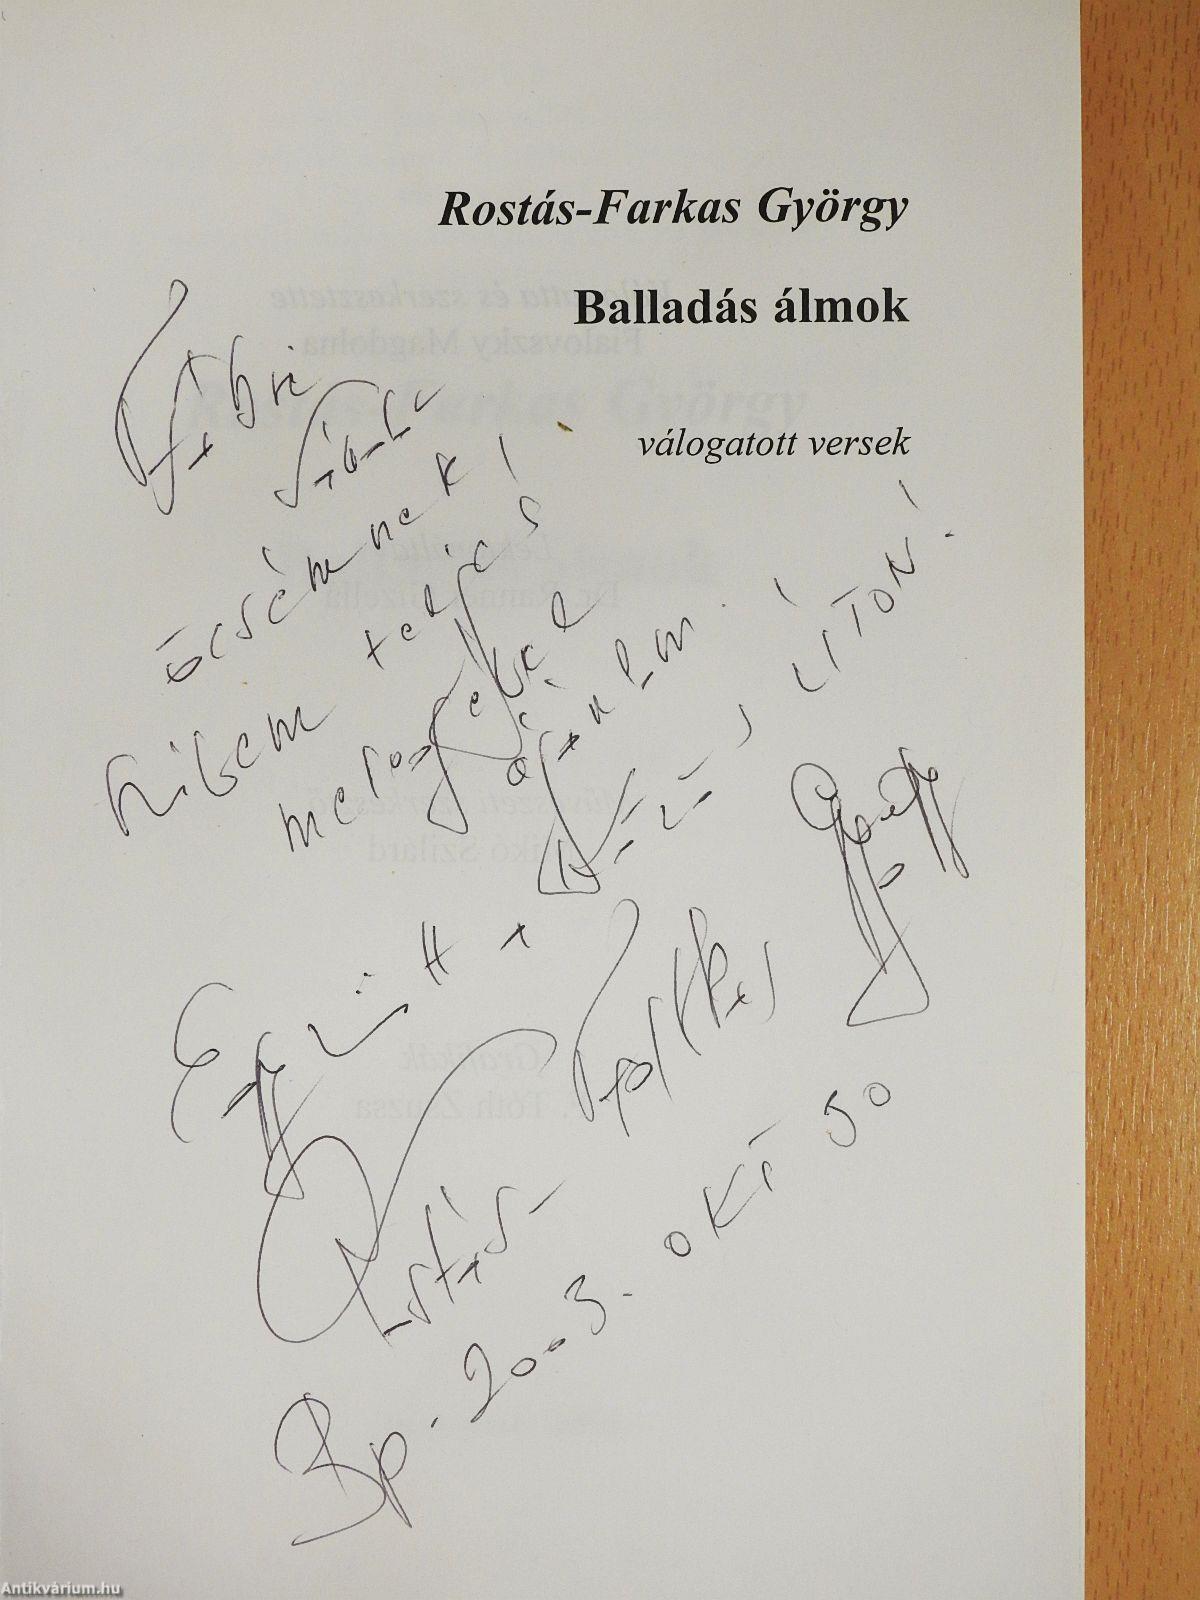 Rostás-Farkas György
Balladás álmok
válogatott versek
Fábri
öcsémnek!
szívem teljes
melegével
ajánlom.
Együtt a közös ÚTON!
Rostás-Farkas György
Bp. 2003. OKT 30
Antikvárium.hu